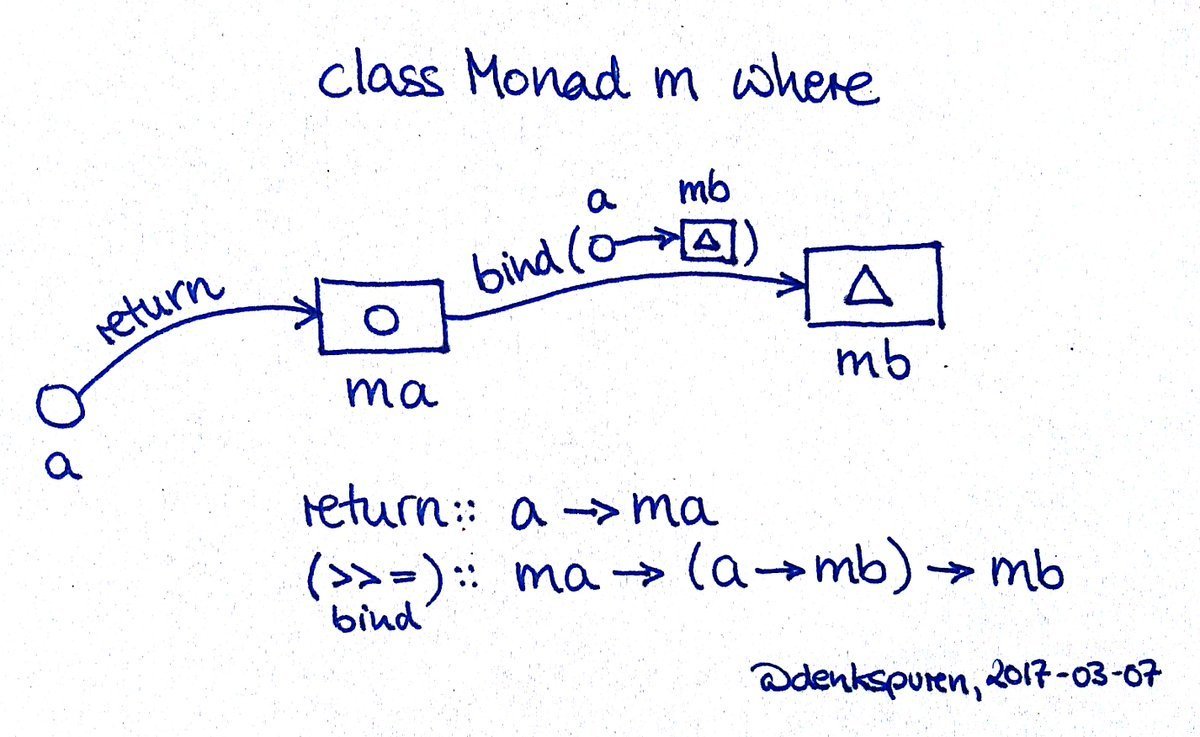 class Monad m where
a mb
bind( )
return
ma
mb
a
return:: a → ma
(>>=):: ma → (a → mb) → mb
bind
@denkspuren, 2017-03-07